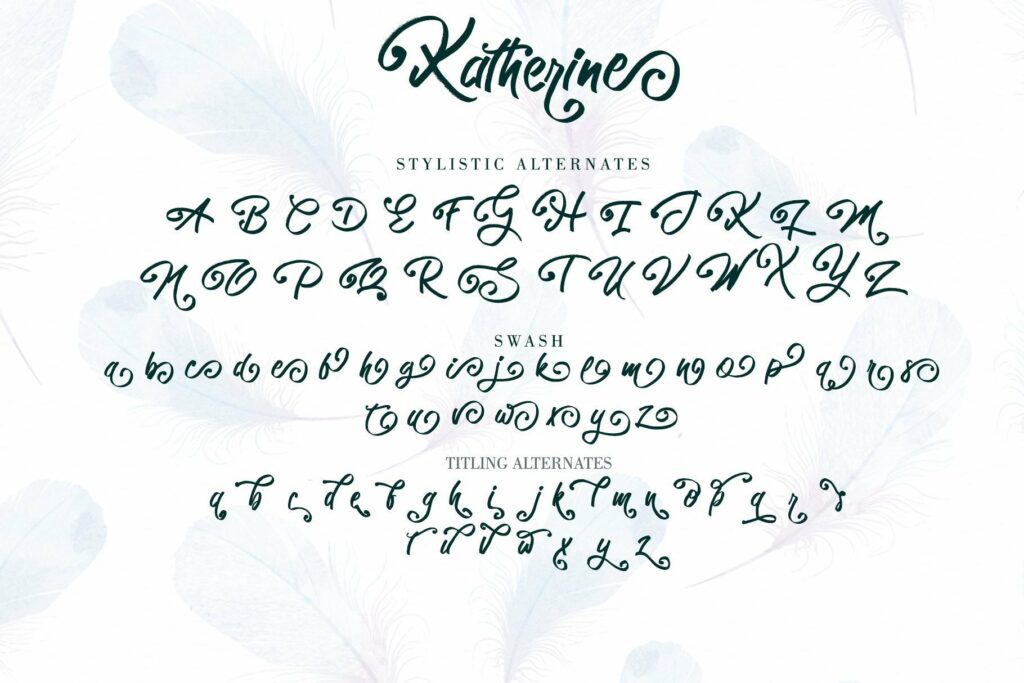 Katherine
STYLISTIC ALTERNATES
A B C D E F G H I J K L M
N O P Q R S T U V W X Y Z
SWASH
a b c d e f h g i j k l m n o p q r s
t u v w x y z
TITLING ALTERNATES
a b c d e f g h i j k l m n o p q r s
t u v w x y z